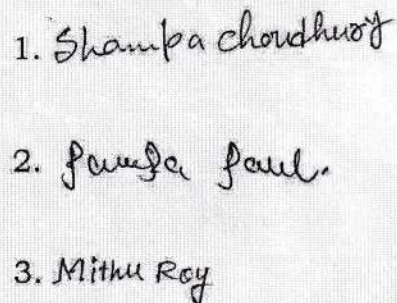 1. Shampa Choudhury
2. Pampa Paul.
3. Mithu Roy